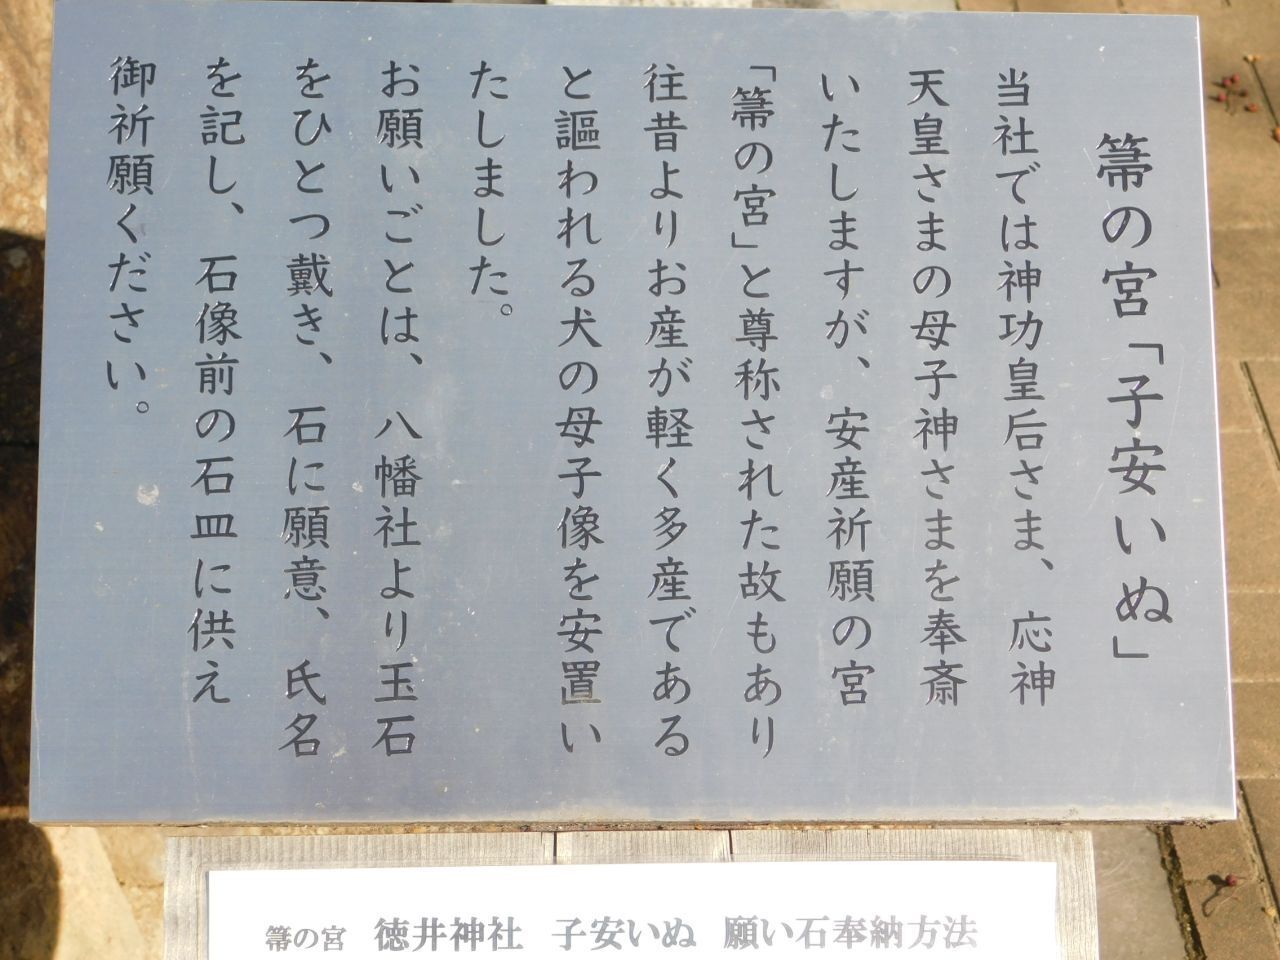 箒の宮「子安いぬ」
当社では神功皇后さま、応神
天皇さまの母子神さまを奉斎
いたしますが、安産祈願の宮
「箒の宮」と尊称された故もあり
往昔よりお産が軽く多産である
と謳われる犬の母子像を安置い
たしました。
お願いごとは、八幡社より玉石
をひとつ戴き、石に願意、氏名
を記し、石像前の石皿に供え
御祈願ください。
箒の宮 徳井神社 子安いぬ 願い石奉納方法